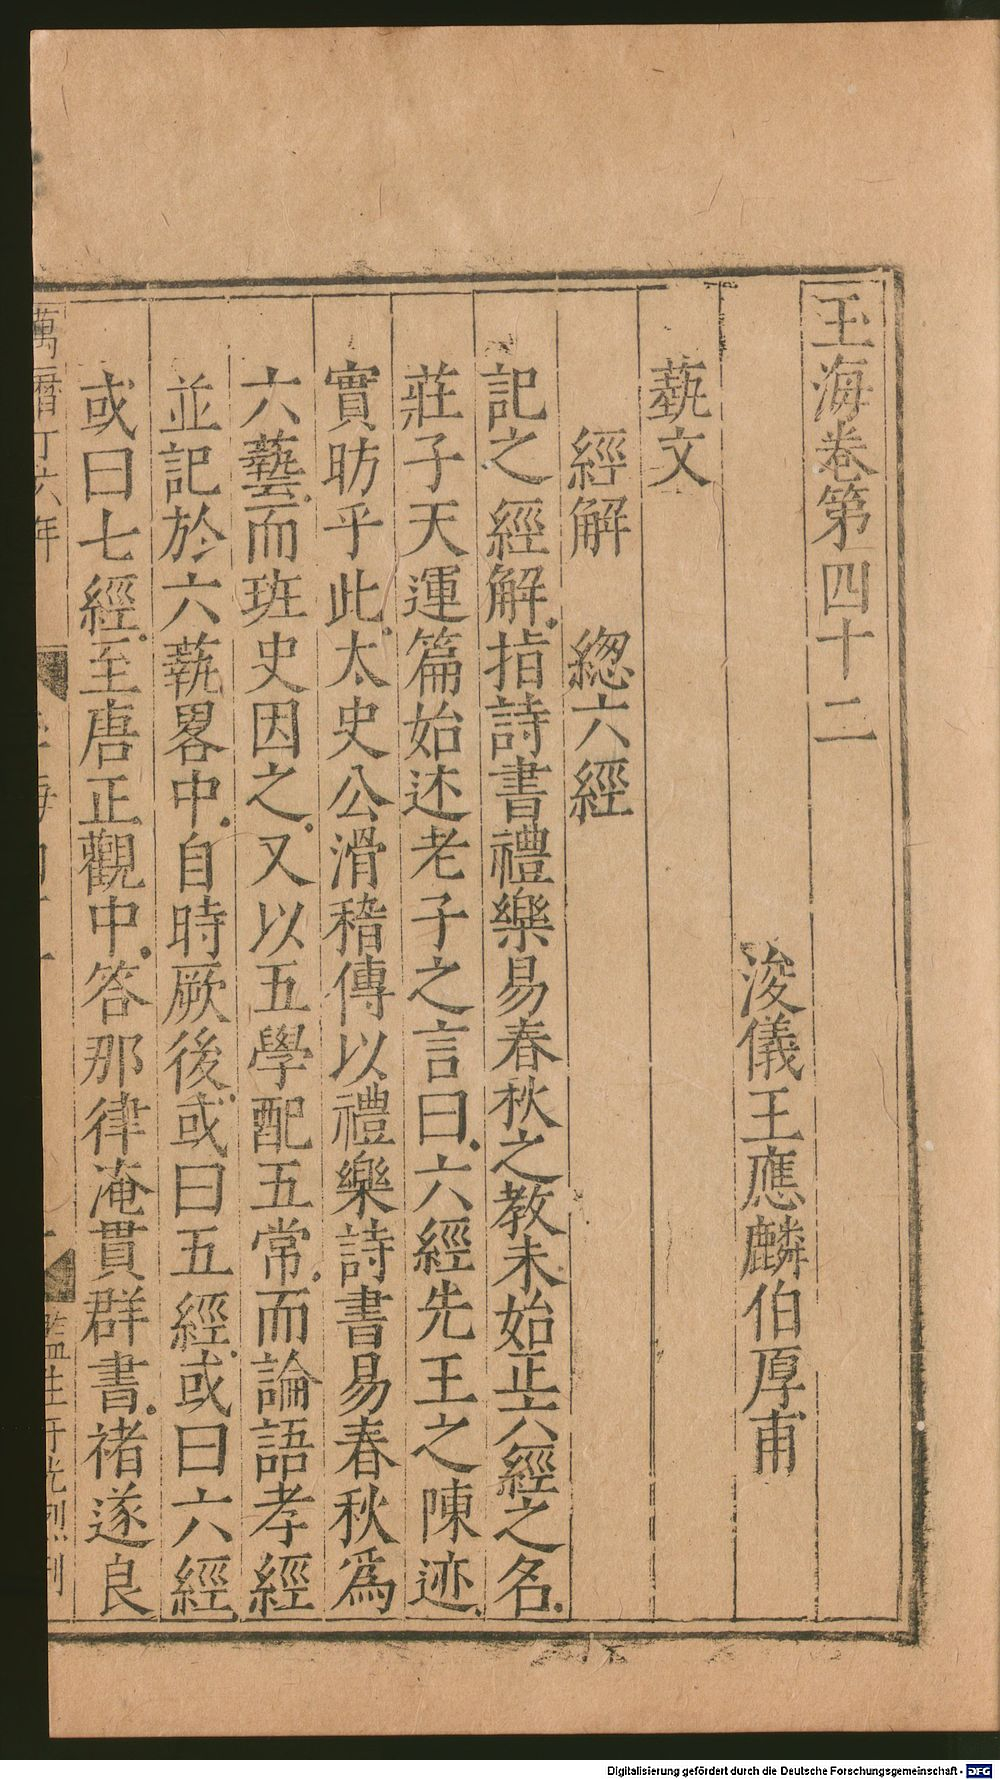 玉海卷第四十二
浚儀王應麟伯厚甫
蓺文
經解　總六經
記之經解指詩書禮樂易春秋之教未始正六經之名
莊子天運篇始述老子之言曰六經先王之陳迹
實昉乎此太史公滑稽傳以禮樂詩書易春秋爲
六藝而班史因之又以五學配五常而論語孝經
並記於六蓺畧中自時厥後或曰五經或曰六經
或曰七經至唐正觀中答那律淹貫群書褚遂良
萬曆丁六年
監生于光烈刊
Digitalisierung gefördert durch die Deutsche Forschungsgemeinschaft - DFG